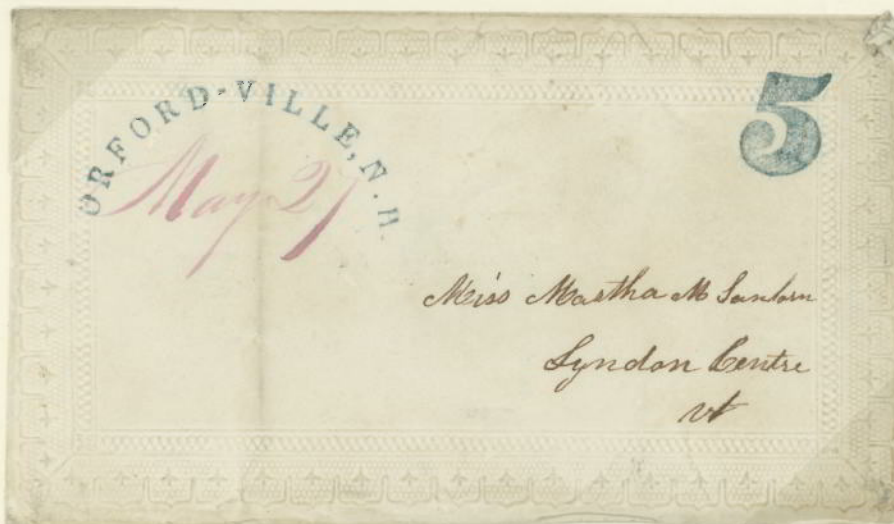 ORFORD-VILLE, N.H.
May 27
5
Miss Martha M Sanborn
Lyndon Centre
Vt